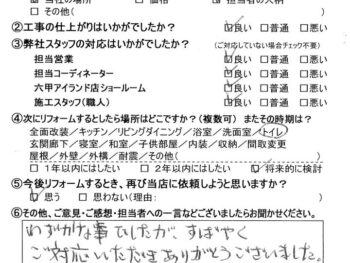 □ その他(
②工事の仕上がりはいかがでしたか? ☑良い □普通 □悪い
③弊社スタッフの対応はいかがでしたか? (ご対応していない場合チェック不要)
担当営業 ☑良い □普通 □悪い
担当コーディネーター ☑良い □普通 □悪い
六甲アイランド店ショールーム ☑良い □普通 □悪い
施工スタッフ(職人) ☑良い □普通 □悪い
④次にリフォームするとしたら場所はどこですか?(複数可) またその時期は?
全面改装/キッチン/リビングダイニング/浴室/洗面室/トイレ
玄関廊下/寝室/和室/子供部屋/内装/収納/間取変更
屋根/外壁/外構/耐震/その他( )
□1年以内にはしたい □2年以内にはしたい ☑将来的に検討
⑤今後リフォームするとき、再び当店に依頼しようと思いますか?
☑思う □思わない(理由: )
⑥その他、ご意見・ご感想・担当者への一言などございましたらお聞かせください。
わずかな事でしたが、すばやく
ご対応いただきありがとうございました。